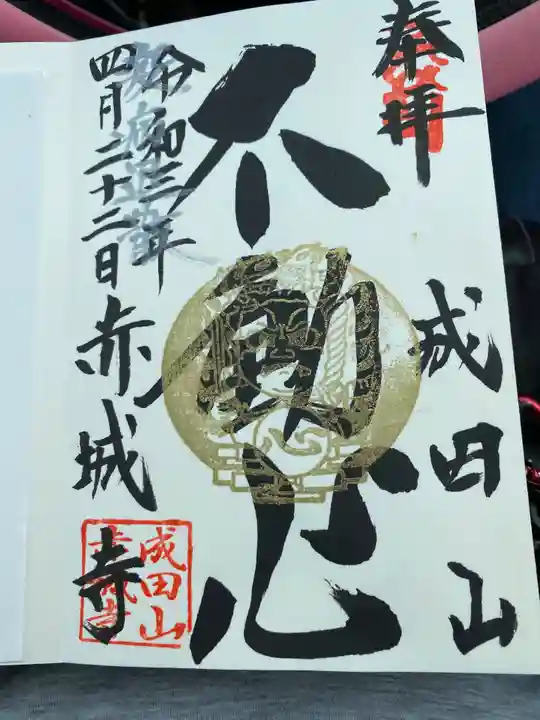 奉拝
成田山
不動心
令和三年
四月二十二日
赤城寺
成田山
赤城寺